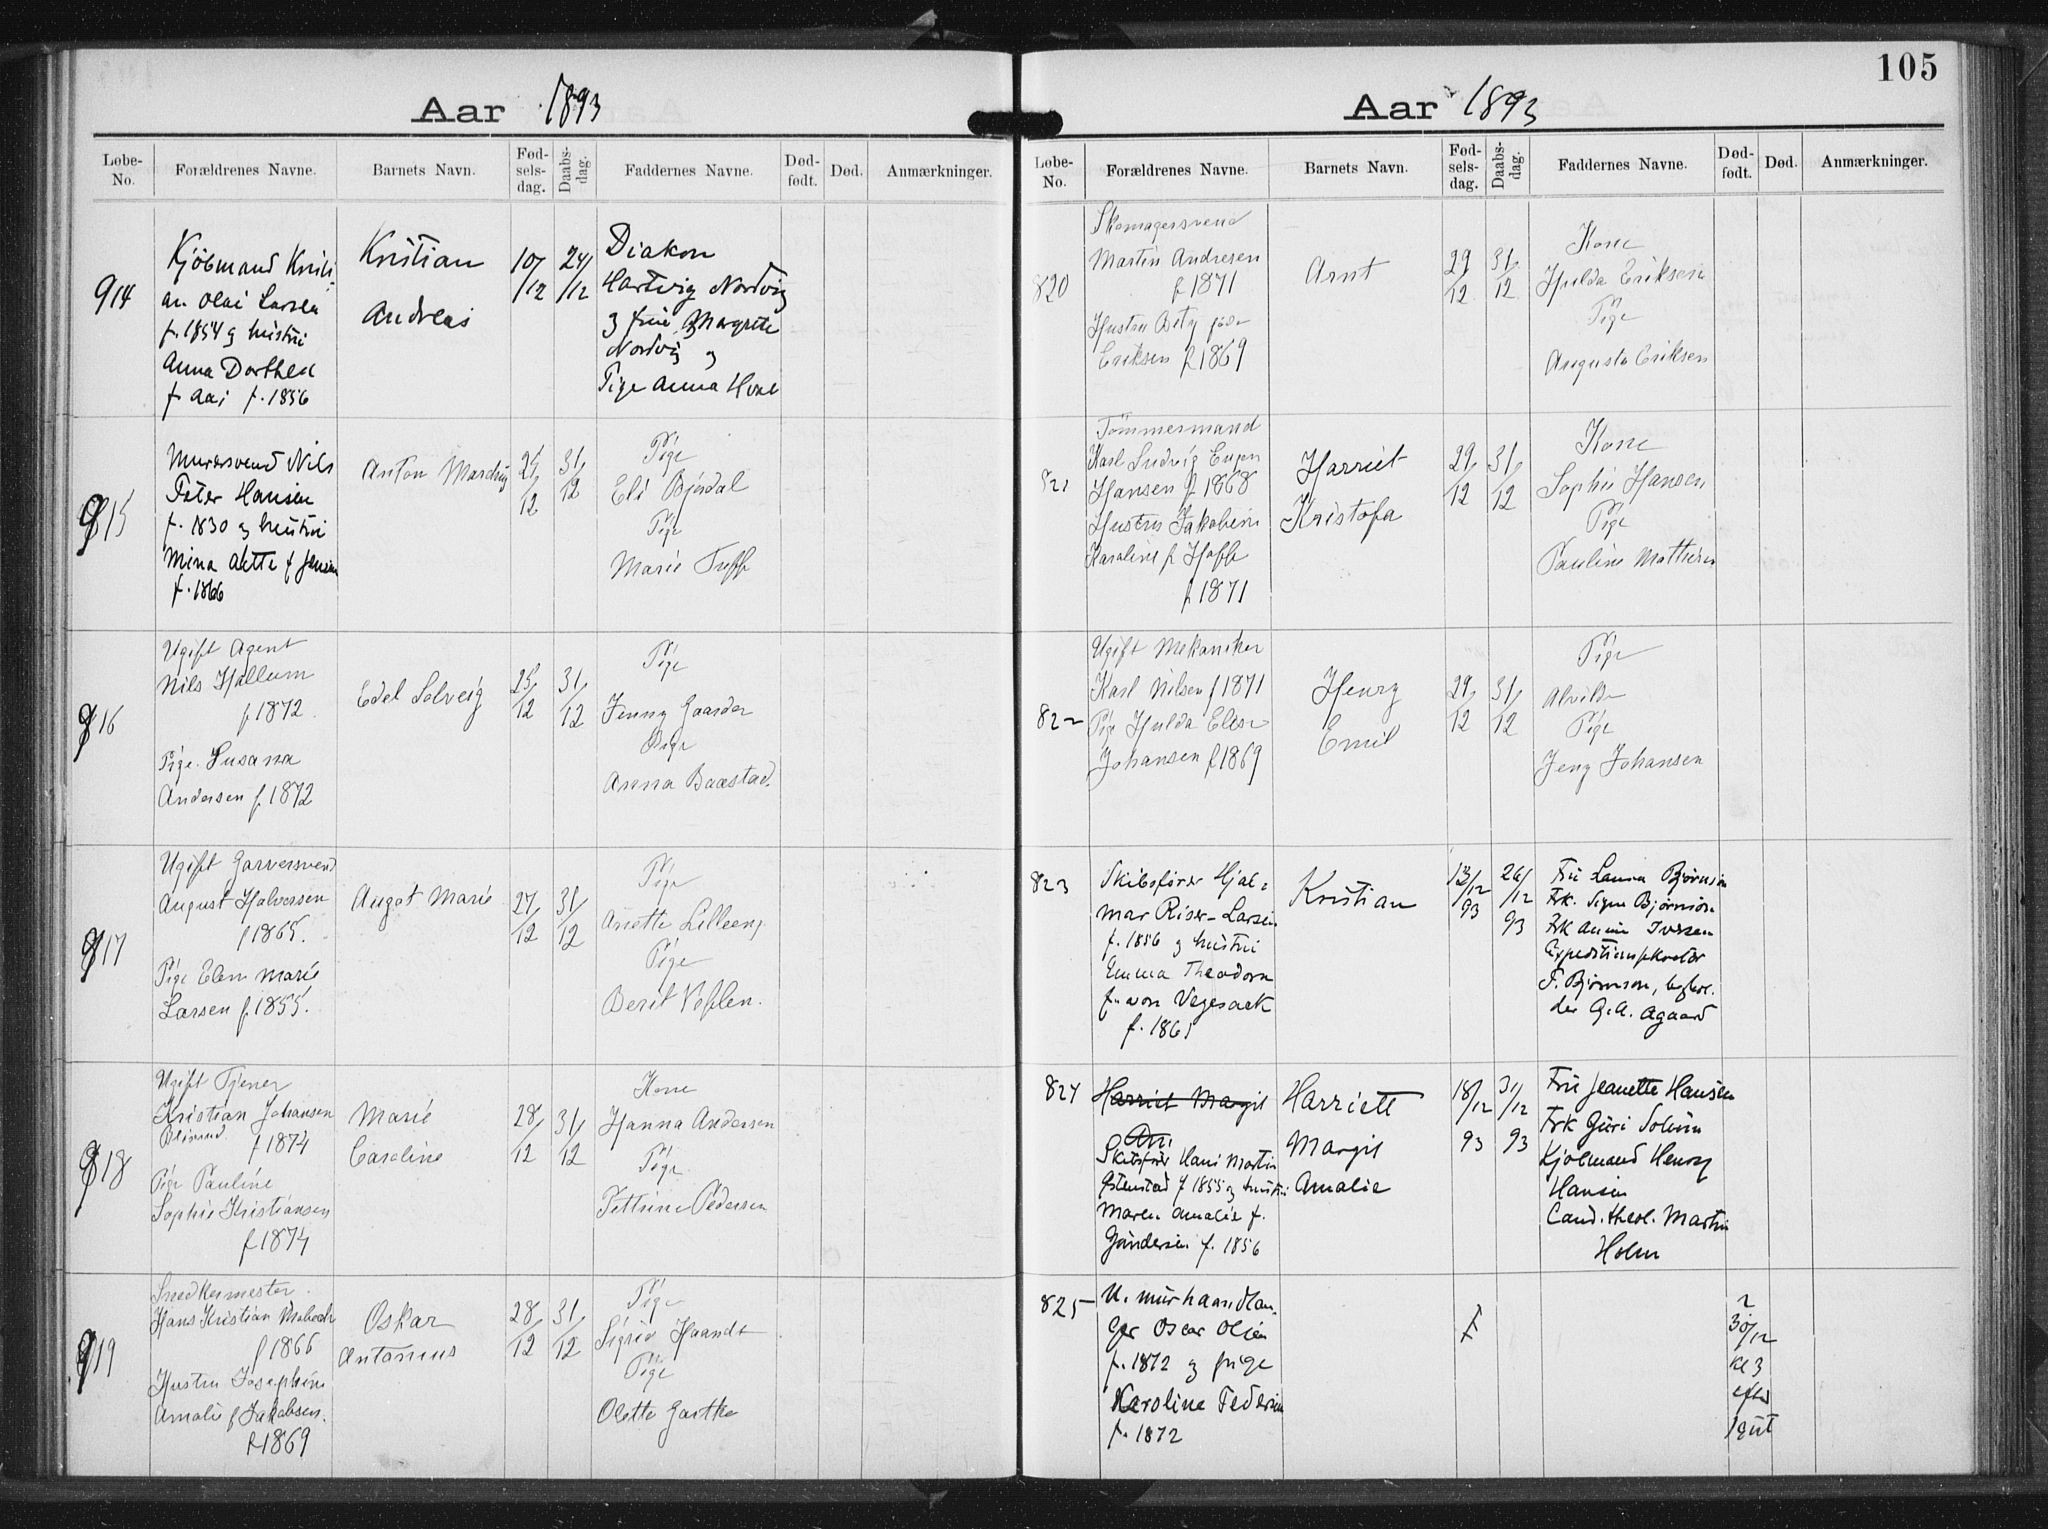 Aar 1893
Løbe-No.
Forældrenes Navne.
Barnets Navn.
Fød-selsdag.
Daabs-dag.
Faddernes Navne.
Død-født.
Død.
Anmærkninger.
914
Kjöbmand Kristi-
an Olai Larsen
f. 1854 g hustrü
Anna Dorthea
f Aai f. 1856
Kristian
Andreas
10/12
24/12
Diakon
Hartvig Nordvig
g frue Margrete
Nordvig g
Pige Anna Hval
915
Murersvend Nils
Peter Hansen
f. 1830 g hustrü
Mina Aette f Jensen
f. 1866
Anton
25/12
31/12
Pige
Eli Björdal
Pige
Marie
916
Ugift Agent
Nils Hallum
f 1872
Pige Susanna
Andersen f. 1872
Edel Solveig
25/12
31/12
Pige
Jenny Gaarder
Pige
Anna Baastad.
917
Ugift Garversvend
August Halvorsen
f 1865.
Pige Elen Marie
Larsen f. 1855.
Augot Marie
27/12
31/12
Pige
Anette Lilleeng
Pige
Berit
918
Ugift Tjener
Kristian Johansen
f 1874
Pige Pauline
Sophie Kristiansen
f 1874
Marie
Caroline
28/12
31/12
Kone
Hanna Andersen
Pige
Pettrine Pedersen
919
Snedkermester
Hans Kristian
f 1866
Hustru Josephine
Amalie f Jakobsen.
f 1869
Oskar
Antonius
28/12
31/12
Pige
Sigrid Haandt
Pige
Olette
Aar 1893
105
Løbe-No.
Forældrenes Navne.
Barnets Navn.
Fød-selsdag.
Daabs-dag.
Faddernes Navne.
Død-født.
Død.
Anmærkninger.
820
Skomagersvend
Martin Andresen
f 1871
Hustru Bety född
Eriksen f 1869
Arnt
29/12
31/12
Kone
Hulda Eriksen
Pige
Augusta Eriksen
821
Tömmermand
Karl Ludvig Eugen
Hansen f 1868
Hustru Jakobine
Karoline f Hoff
f 1871
Harriet
Kristofa
29/12
31/12
Kone
Sophie Hansen
Pige
Pauline Mathisen
822
Ugift Mekaniker
Karl Nilsen f 1871
Pige Hulda Elise
Johansen f 1869
Henry
Emil
29/12
31/12
Pige
Alvilde
Pige
Jeny Johansen
823
Skibsfører Hjal-
mar Riser-Larsen
f. 1856 g hustrü
Emma Theodora
f. von Vegesack
f. 1865
Kristian
13/12 93
26/12 93
Frü Laura Bjørnson
Frk. Signe Bjørnson
Frk Annie Iversen
F. Bjørnson,
G. A. Agaard
824
Harriet Margit
An.
Skibsfører Hans Martin
Østenstad f 1855 g hustrü
Maren Amalie f.
Gündersen f. 1856
Harriett
Margit
Amalie
18/12 93
31/12 93
Frü Jeanette Hansen
Frk Güri Solum
Kjøbmand Henry
Hansen
Cand. theol. Martin
Holm
825
U. mürhaandlan-
ger Oscar Olsen
f. 1872 g pige
Karoline Pedersen
f. 1872
30/12
kl 3
efter
1 güt